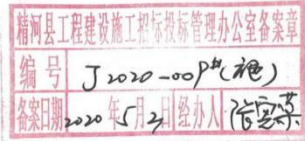 精河县工程建设施工招标投标管理办公室备案章
编号 J2020-009#
备案日期 2020年5月2日 经办人